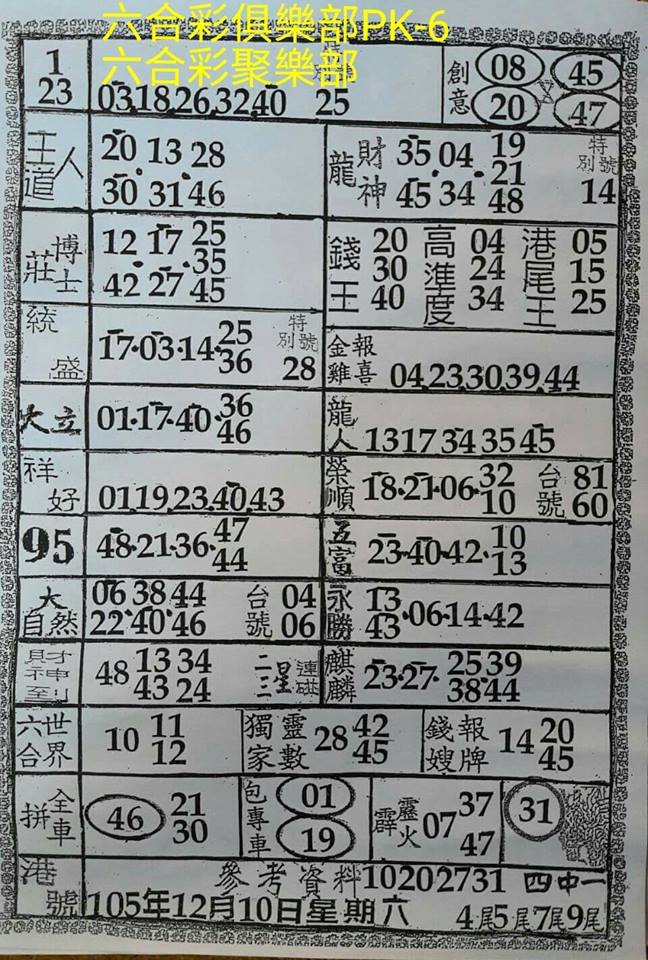 六合彩俱樂部PK-6
六合彩聚樂部
1
23
03,18,26,32,40 25
創意 08 45
20 47
王道人
20 13 28
30 31 46
龍財神
35 04 19
21
45 34 48
特別號 14
莊博士
12 17 25
35
42 27 45
錢王 20 30 40
高準度 04 24 34
港尾王 05 15 25
統盛
17·03·14·25
36
特別號 28
金雞報喜
04,23,30,39,44
大立
01·17·40·36
46
龍人
13 17 34 35 45
祥好
01,19,23,40,43
榮順
18·21·06·32
10
台號 81
60
95
48·21·36·47
44
五富
23·40·42·10
13
大自然
06 38 44
22·40·46
台號 04
06
永勝
13
43·06·14·42
財神到
48 13 34
43 24
二三星連碰
麒麟
23·27·25 39
38 44
六合世界
10 11
12
獨家靈數
28 42
45
錢嫂報牌
14 20
45
拼全車
46 21
30
包專車
01
19
霹靂火
07 37
47
31
港號
參考資料10202731 四中一
105年12月10日星期六
4尾5尾7尾9尾